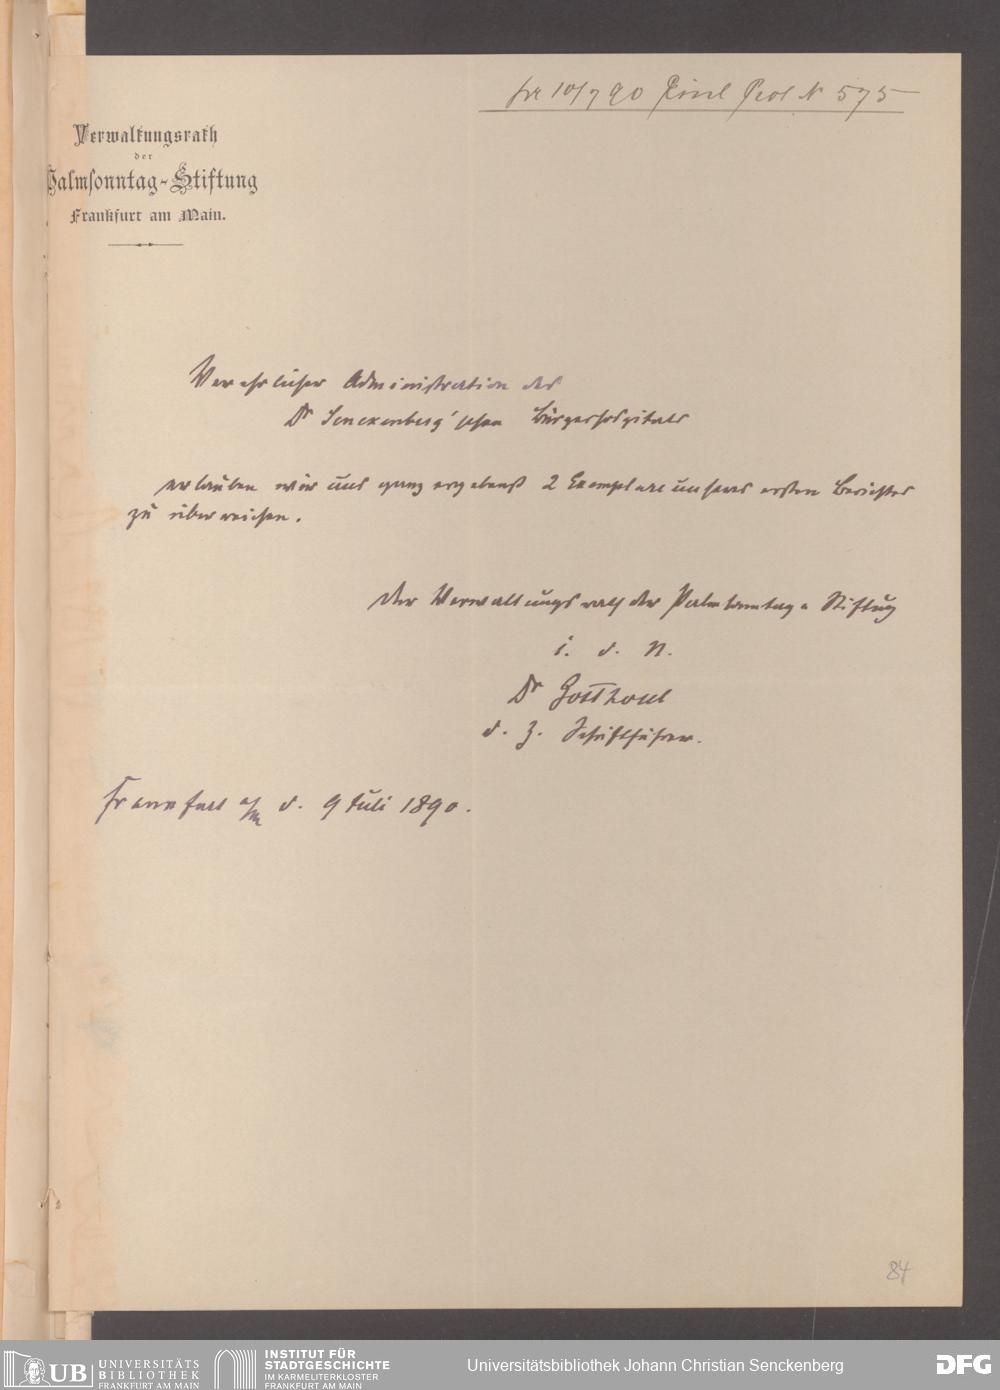 pr 10/7 90 Einl Prot N 575
Verwaltungsrath
der
Palmsonntag-Stiftung
Frankfurt am Main.
Verehrlicher Administration des
Dr Senckenberg'schen Bürgerhospitals
erlauben wir uns ganz ergebenst 2 Exemplare unseres ersten Berichtes
zu überreichen.
Der Verwaltungsrath der Palmsonntag-Stiftung
i. d. N.
Dr Gotthold
d. Z. Schriftführer.
Frankfurt a/M d. 9 Juli 1890.
84
UB UNIVERSITÄTS
BIBLIOTHEK
FRANKFURT AM MAIN
INSTITUT FÜR
STADTGESCHICHTE
IM KARMELITERKLOSTER
FRANKFURT AM MAIN
Universitätsbibliothek Johann Christian Senckenberg
DFG